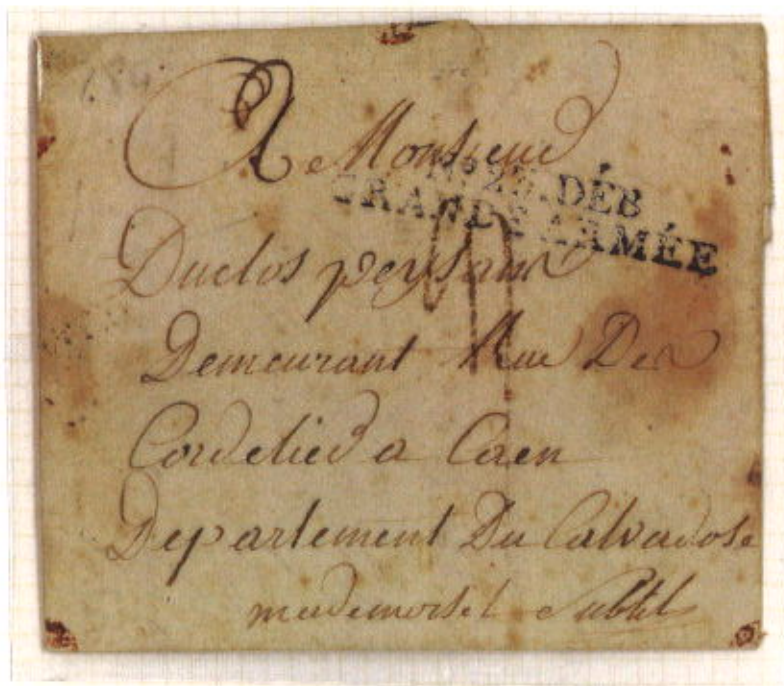 A Monsieur
No 2 DÉB
GRANDE ARMÉE
Duclos
Demeurant Rue Des
Cordelied a Caen
Departement Du Calvados
mademoisel